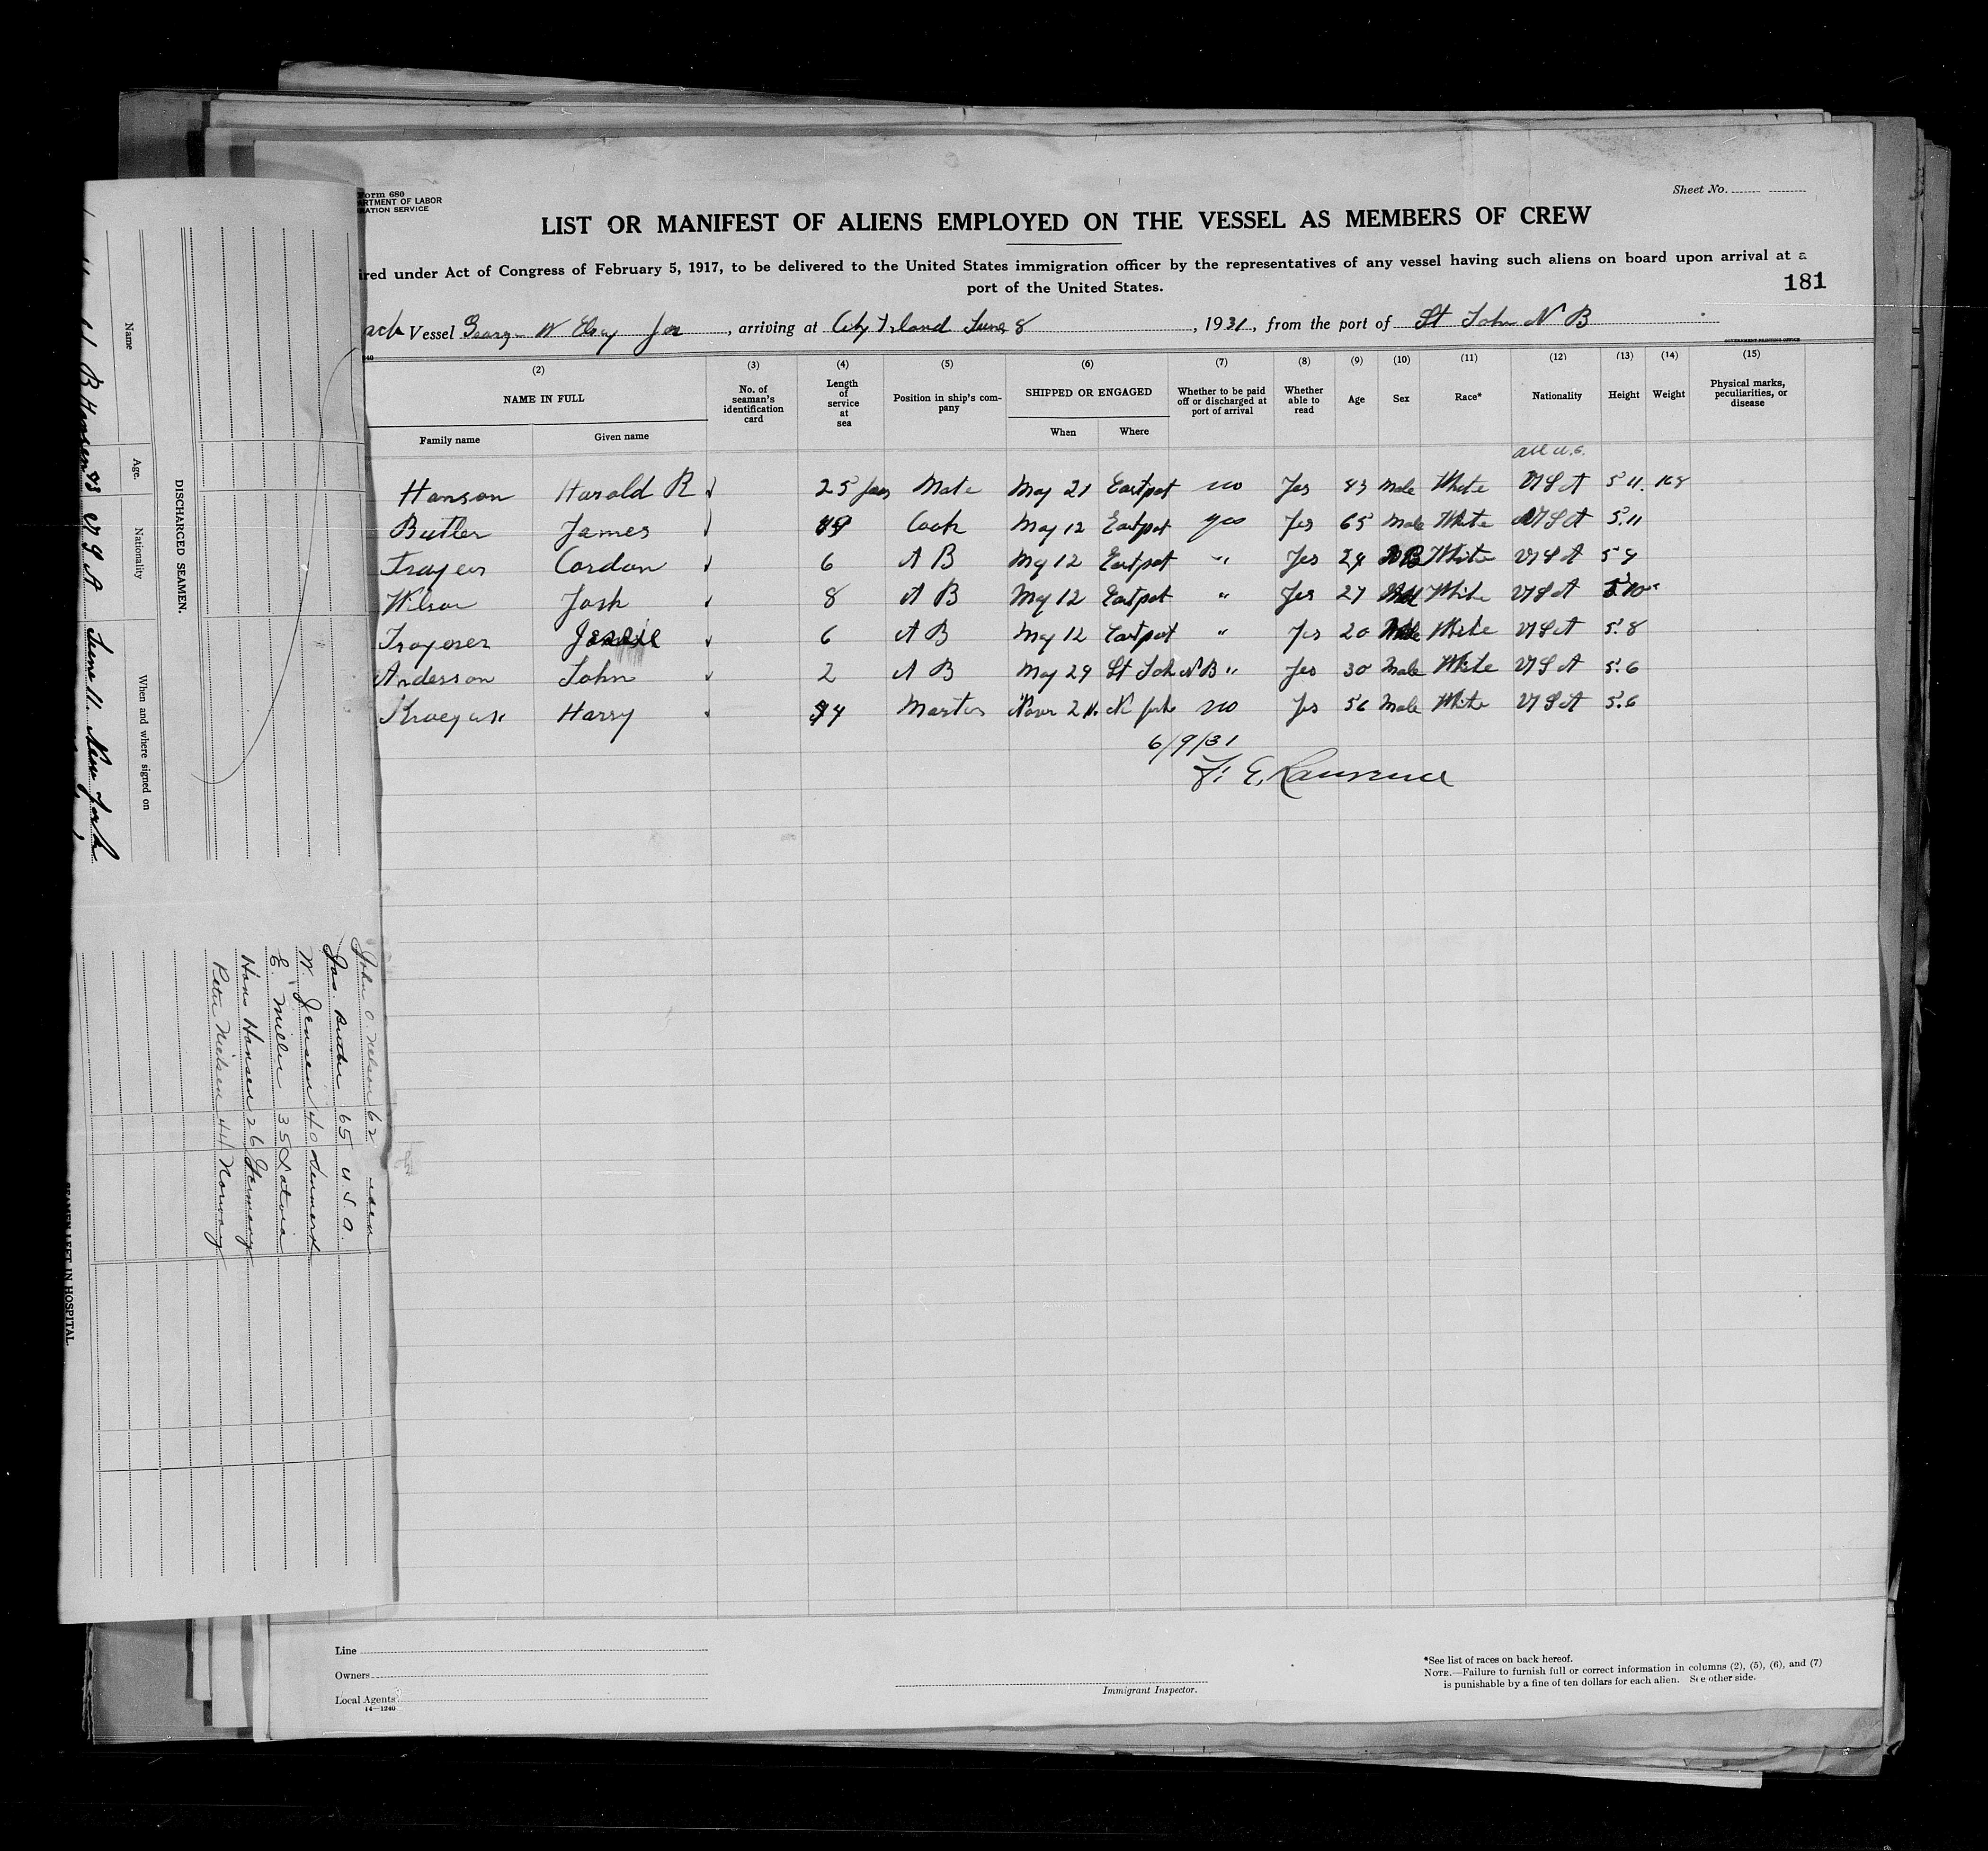 Form 680
ARTMENT OF LABOR
RATION SERVICE
Sheet No.
LIST OR MANIFEST OF ALIENS EMPLOYED ON THE VESSEL AS MEMBERS OF CREW
ired under Act of Congress of February 5, 1917, to be delivered to the United States immigration officer by the representatives of any vessel having such aliens on board upon arrival at a
port of the United States.
181
Vessel George W Elzey Jr, arriving at City Island June 8, 1931, from the port of St John N B
GOVERNMENT PRINTING OFFICE
(2) (3) (4) (5) (6) (7) (8) (9) (10) (11) (12) (13) (14) (15)
NAME IN FULL
Family name Given name
No. of seaman's identification card
Length of service at sea
Position in ship's company
SHIPPED OR ENGAGED
When Where
Whether to be paid off or discharged at port of arrival
Whether able to read
Age Sex Race* Nationality Height Weight
Physical marks, peculiarities, or disease
all U.S.
Hanson Harold R 25 years Mate May 21 Eastport no Yes 43 Male White U S A 5 11 168
Butler James Cook May 12 Eastport yes Yes 65 Male White U S A 5.11
Gordon 6 A B May 12 Eastport " Yes 24 White U S A 5 9
Wilson Josh 8 A B May 12 Eastport " Yes 27 White U S A 5.10
6 A B May 12 Eastport " Yes 20 Male White U S A 5.8
Anderson John 2 A B May 29 St John N B " Yes 30 Male White U S A 5.6
Harry Master Nover 2 N York no Yes 56 Male White U S A 5.6
6/9/31
F. E. Lawrence
Line
Owners
Local Agents
14—1240
Immigrant Inspector.
*See list of races on back hereof.
NOTE.—Failure to furnish full or correct information in columns (2), (5), (6), and (7)
is punishable by a fine of ten dollars for each alien. See other side.
DISCHARGED SEAMEN.
Name Age. Nationality When and where signed on
B Hansen 43 U S A June 11. New York
John O. Nelson 62
Jas. Butler 65 U.S.A.
W. Jensen 40 Denmark
E. Miller 35 Latvia
Hans Hansen 26 Germany
Peter Nielsen 44 Norway
SEAMEN LEFT IN HOSPITAL